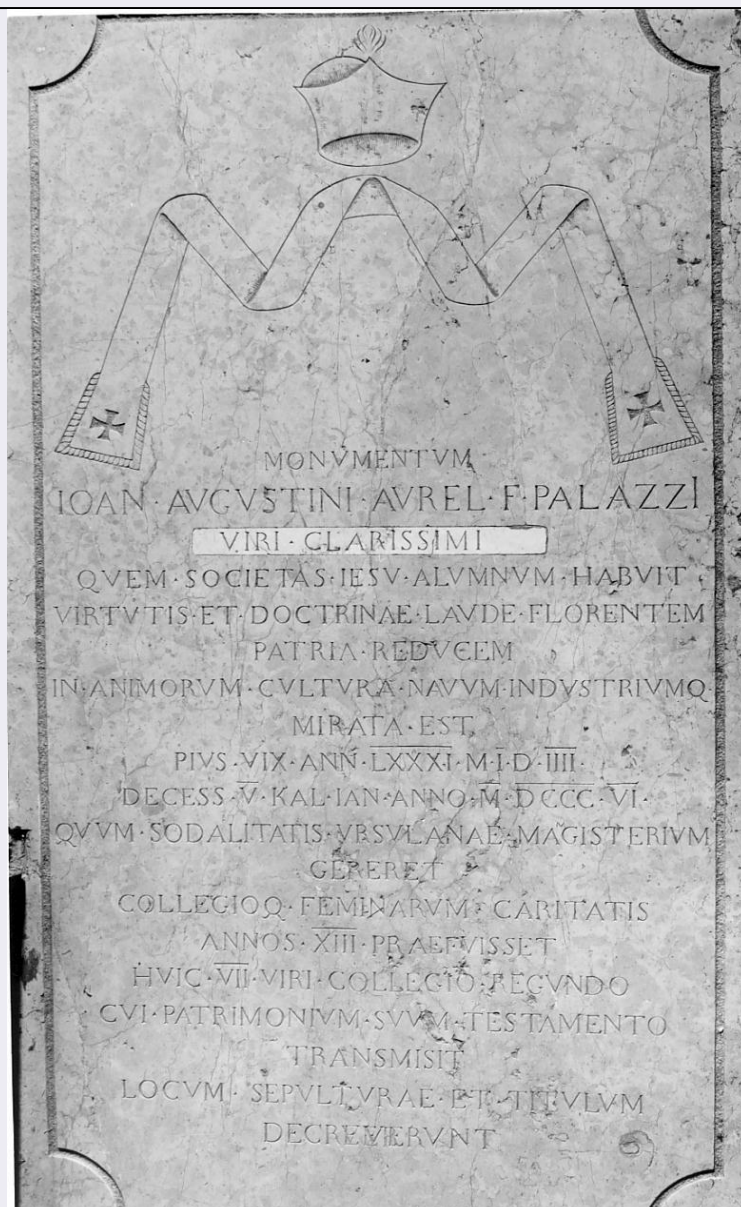 MONVMENTVM
IOAN · AVGVSTINI · AVREL · F · PALAZZI
VIRI · CLARISSIMI
QVEM · SOCIETAS · IESV · ALVMNVM · HABVIT
VIRTVTIS · ET · DOCTRINAE · LAVDE · FLORENTEM
PATRIA · REDVCEM
IN · ANIMORVM · CVLTVRA · NAVVM · INDVSTRIVMQ ·
MIRATA · EST
PIVS · VIX · ANN · L̅X̅X̅X̅I̅ · M · I̅ · D · I̅I̅I̅I̅ ·
DECESS · V̅ · KAL · IAN · ANNO · M̅ · D̅C̅C̅C̅ · V̅I̅ ·
QVVM · SODALITATIS · VRSVLANAE · MAGISTERIVM
GERERET
COLLEGIOQ · FEMINARVM · CARITATIS
ANNOS · X̅I̅I̅I̅ · PRAEFVISSET
HVIC · V̅I̅I̅ · VIRI · COLLEGIO · REGVNDO
CVI · PATRIMONIVM · SVVM · TESTAMENTO
TRANSMISIT
LOCVM · SEPVLTVRAE · ET · TITVLVM
DECREVERVNT